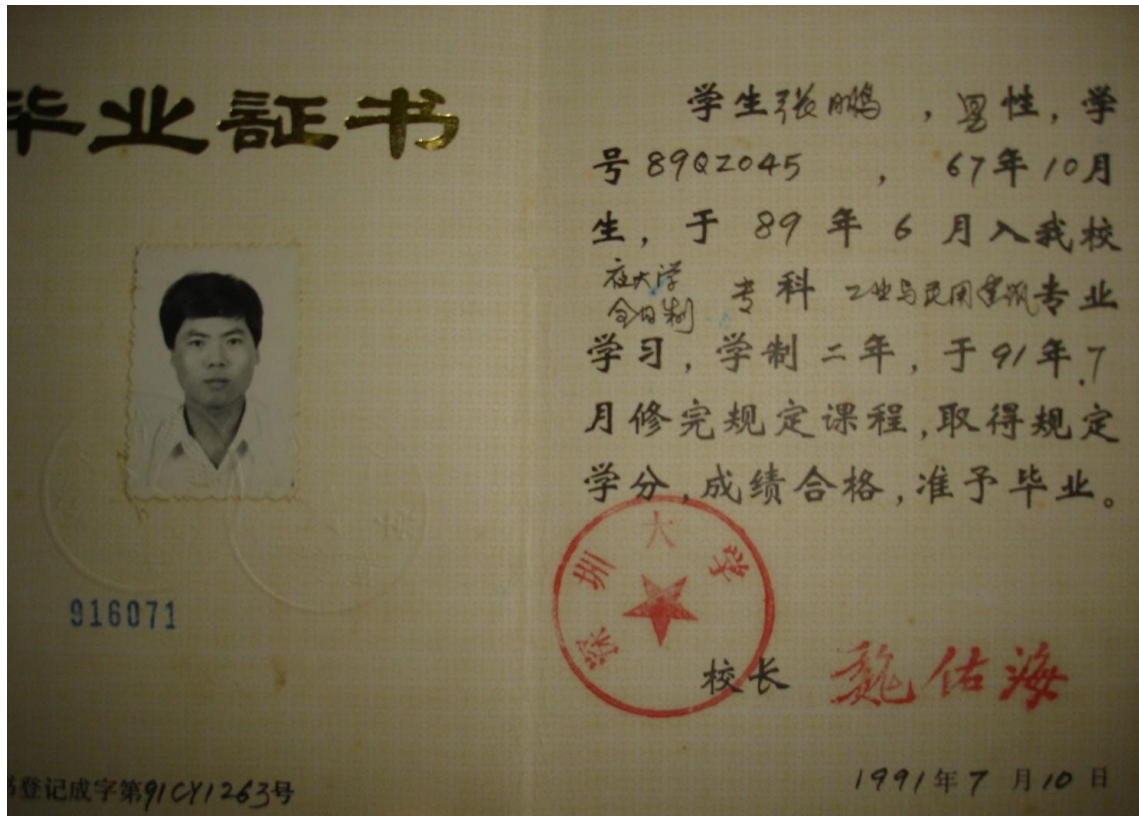 毕业証书
916071
书登记成字第91CY1263号
学生张鹏,男性,学
号89QZ045,67年10月
生,于89年6月入我校
夜大学
全日制
专科 工业与民用建筑专业
学习,学制二年,于91年7
月修完规定课程,取得规定
学分,成绩合格,准予毕业。
深圳大学
校长 魏佑海
1991年7月10日